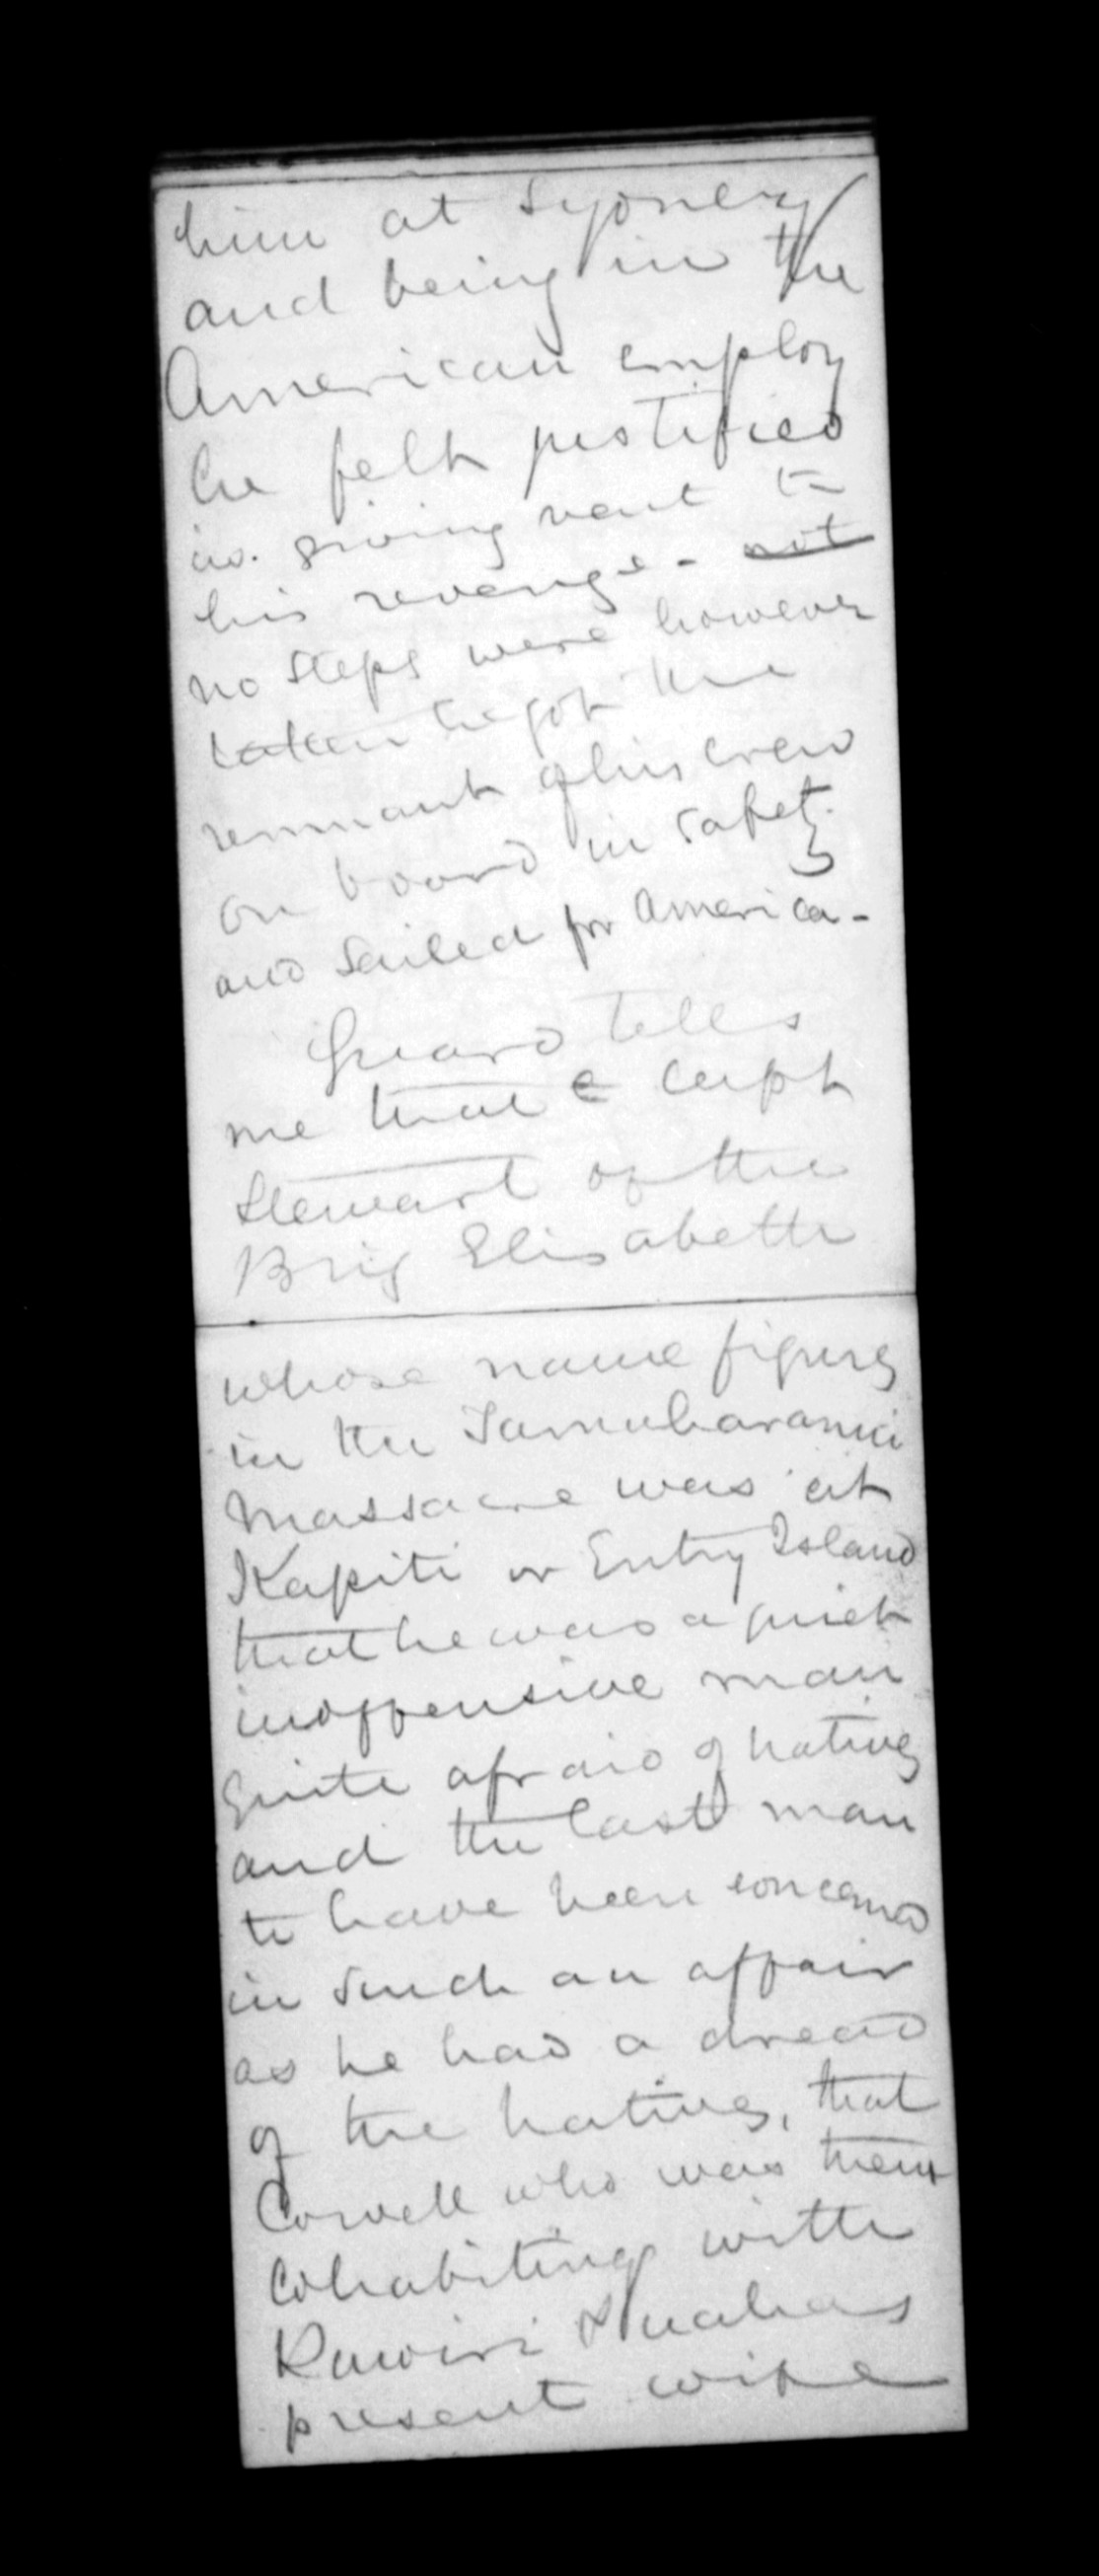 him at Sydney
and being in the
American employ
he felt justified
in giving vent to
his revenge - not
no steps were however
taken he got the
remnant of his crew
on board in safety
and sailed for America -
Guard tells
me that Capt
Stewart of the
Brig Elisabeth
whose name figures
in the Tamuharanui
Massacre was at
Kapiti or Entry Island
that he was a quiet
inoffensive man
quite afraid of natives
and the last man
to have been concerned
in such an affair
as he had a dread
of the natives, that
Cowell who was then
cohabiting with
Rawiri
present wife